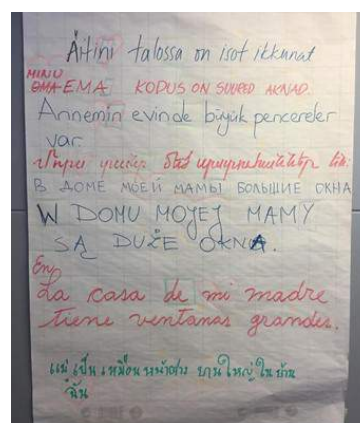 Äitini talossa on isot ikkunat
MINU
EMA KODUS ON SUURED AKNAD.
Annemin evinde büyük pencereler
var.
В ДОМЕ МОЕЙ МАМЫ БОЛЬШИЕ ОКНА
W DOMU MOJEJ MAMY
SĄ DUŻE OKNA.
La casa de mi madre
tiene ventanas grandes.
แม่เป็นเหมือนหน้าต่าง บานใหญ่ในบ้าน
ฉัน